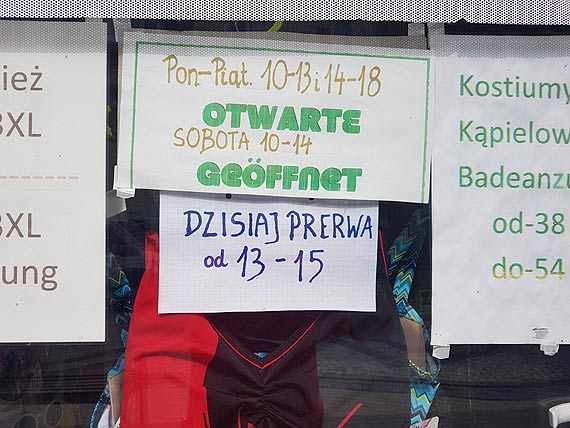 3XL
3XL
Pon-Piąt. 10-13 i 14-18
OTWARTE
SOBOTA 10-14
GEÖFFNET
DZISIAJ PRERWA
od 13-15
Kostiumy
od-38
do-54